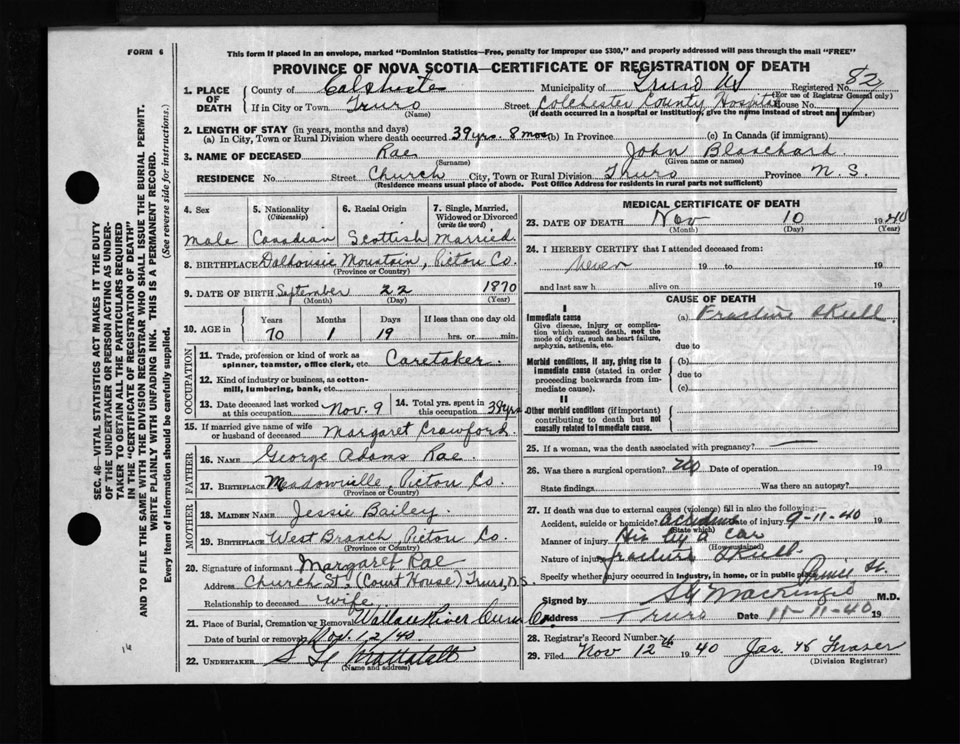 FORM 6
This form if placed in an envelope, marked "Dominion Statistics—Free, penalty for improper use $300," and properly addressed will pass through the mail "FREE"
PROVINCE OF NOVA SCOTIA—CERTIFICATE OF REGISTRATION OF DEATH
SEC. 46—VITAL STATISTICS ACT MAKES IT THE DUTY
OF THE UNDERTAKER OR PERSON ACTING AS UNDER-
TAKER TO OBTAIN ALL THE PARTICULARS REQUIRED
IN THE "CERTIFICATE OF REGISTRATION OF DEATH"
AND TO FILE THE SAME WITH THE DIVISION REGISTRAR WHO SHALL ISSUE THE BURIAL PERMIT.
WRITE PLAINLY WITH UNFADING INK. THIS IS A PERMANENT RECORD.
Every item of information should be carefully supplied. (See reverse side for instructions.)
1. PLACE OF DEATH
County of Colchester Municipality of Truro Registered No. 82
(For use of Registrar General only)
If in City or Town Truro Street Colchester County Hospital House No.
(Name) (If death occurred in a hospital or institution, give the name instead of street and number)
2. LENGTH OF STAY (in years, months and days)
(a) In City, Town or Rural Division where death occurred 39 yrs. 8 mos (b) In Province (c) In Canada (if immigrant)
3. NAME OF DECEASED Rae John Blanchard
(Surname) (Given name or names)
RESIDENCE No. Street Church City, Town or Rural Division Truro Province N. S.
(Residence means usual place of abode. Post Office Address for residents in rural parts not sufficient)
4. Sex 5. Nationality (Citizenship) 6. Racial Origin 7. Single, Married, Widowed or Divorced (write the word)
Male Canadian Scottish Married
8. BIRTHPLACE Dalhousie Mountain, Pictou Co.
(Province or Country)
9. DATE OF BIRTH September 22 1870
(Month) (Day) (Year)
10. AGE in Years Months Days If less than one day old
70 1 19 hrs. or min.
OCCUPATION
11. Trade, profession or kind of work as spinner, teamster, office clerk, etc. Caretaker
12. Kind of industry or business, as cotton-mill, lumbering, bank, etc.
13. Date deceased last worked at this occupation Nov. 9 14. Total yrs. spent in this occupation 39 yrs
15. If married give name of wife or husband of deceased Margaret Crawford
FATHER
16. NAME George Adams Rae
17. BIRTHPLACE Meadowville, Pictou Co.
(Province or Country)
MOTHER
18. MAIDEN NAME Jessie Bailey
19. BIRTHPLACE West Branch, Pictou Co.
(Province or Country)
20. Signature of informant Margaret Rae
Address Church St. (Court House) Truro, N.S.
Relationship to deceased wife
21. Place of Burial, Cremation or Removal Wallace River Cum Co.
Date of burial or removal Nov. 12/40.
22. UNDERTAKER
(Name and address)
MEDICAL CERTIFICATE OF DEATH
23. DATE OF DEATH Nov 10 1940
(Month) (Day) (Year)
24. I HEREBY CERTIFY that I attended deceased from:
Never 19 to 19
and last saw h alive on 19
CAUSE OF DEATH
I
Immediate cause
Give disease, injury or complication which caused death, not the mode of dying, such as heart failure, asphyxia, asthenia, etc.
(a) Fracture Skull
due to
Morbid conditions, if any, giving rise to immediate cause (stated in order proceeding backwards from immediate cause).
(b)
due to
(c)
II
Other morbid conditions (if important) contributing to death but not causally related to immediate cause.
25. If a woman, was the death associated with pregnancy? —
26. Was there a surgical operation? No Date of operation 19
State findings Was there an autopsy?
27. If death was due to external causes (violence) fill in also the following:—
Accident, suicide or homicide? Accident Date of injury 9-11-40 19
(State which)
Manner of injury Hit by a car
(How sustained)
Nature of injury fracture Skull
Specify whether injury occurred in industry, in home, or in public place
Signed by M.D.
Address Truro Date 11-11-40 19
28. Registrar's Record Number 76
29. Filed Nov 12th 1940 Jas. W Fraser
(Division Registrar)
16